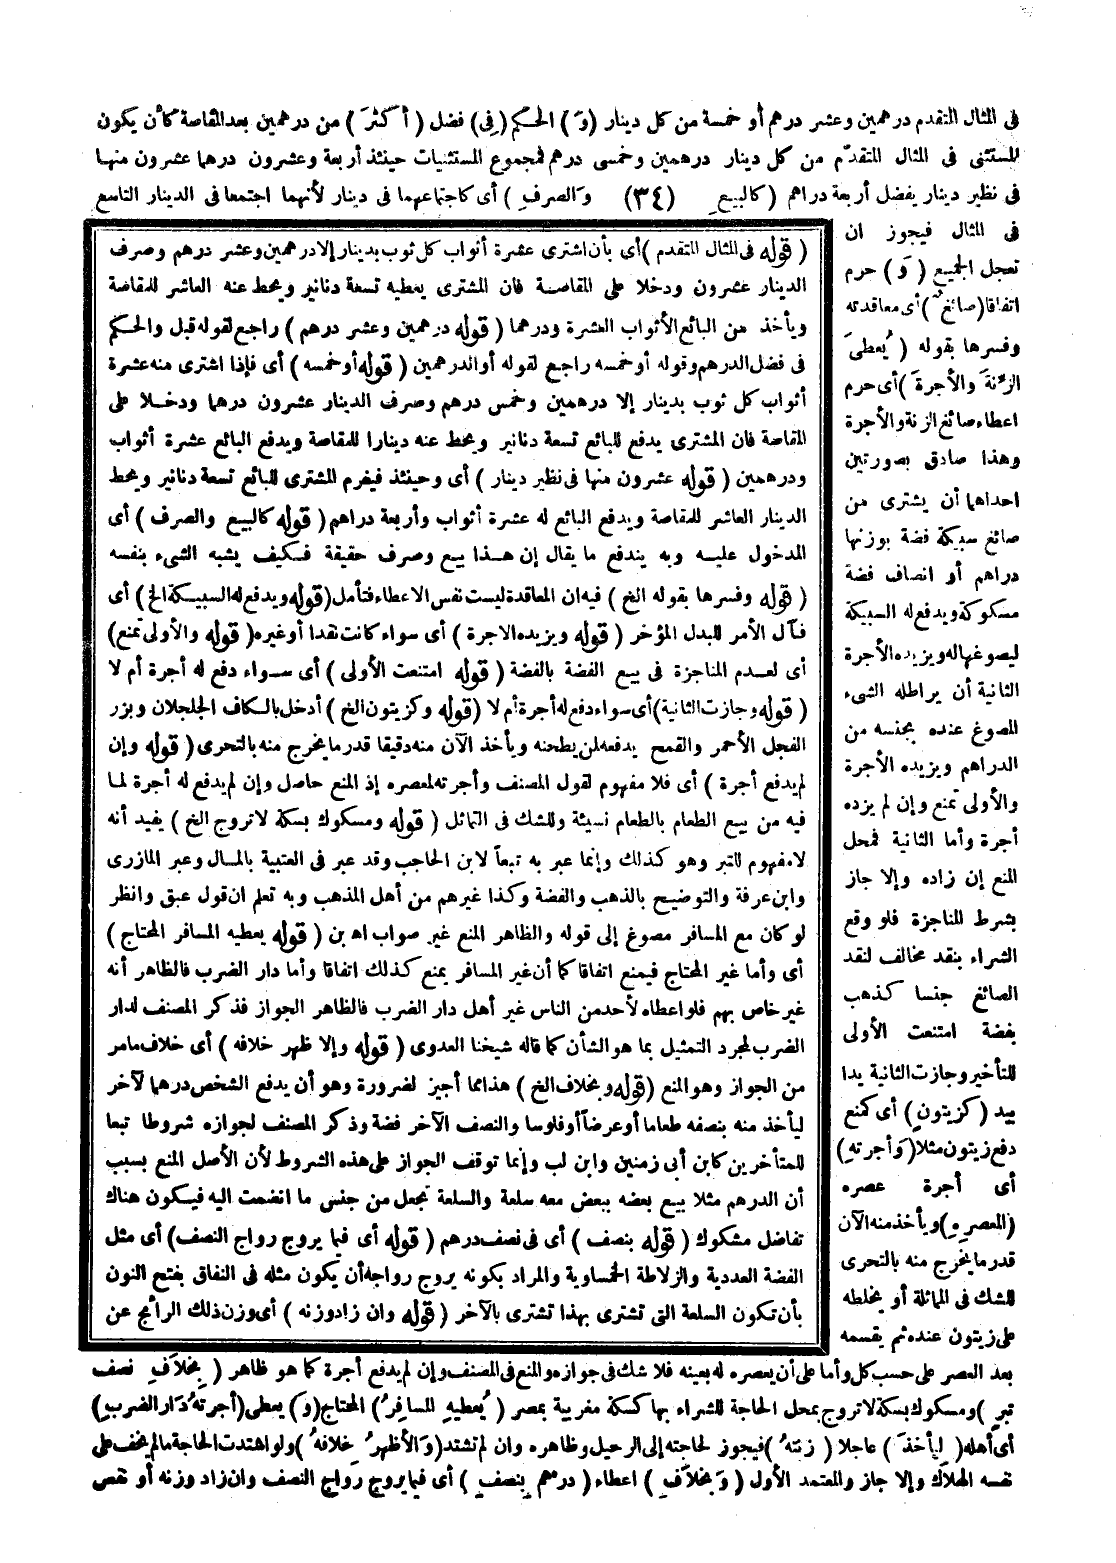 فى المثال المتقدم درهمين وعشر درهم أو خمسة من كل دينار (وَ) الحكم (فِى) فضل (أكثَرَ) من درهمين بعد المقاصة كأن يكون
المستثنى فى المثال المتقدّم من كل دينار درهمين وخمسى درهم فمجموع المستثنيات حينئذ أربعة وعشرون درهما عشرون منها
فى نظير دينار يفضل أربعة دراهم (كالبيعِ (٣٤) وَالصرفِ) أى كاجتماعهما فى دينار لأنهما اجتمعا فى الدينار التاسع
فى المثال فيجوز ان
تعجل الجميع (وَ) حرم
اتفاقا (صائغ) أى معاقدته
وفسرها بقوله (يُعطىَ
الزِّنةَ والأجرةَ) أى حرم
اعطاء صائغ الزنة والأجرة
وهذا صادق بصورتين
احداهما أن يشترى من
صائغ سبيكة فضة بوزنها
دراهم أو انصاف فضة
مسكوكة ويدفع له السبيكة
ليصوغها له ويزيده الأجرة
الثانية أن يراطله الشىء
المصوغ عنده بجنسه من
الدراهم ويزيده الأجرة
والأولى تمنع وإن لم يزده
أجرة وأما الثانية فمحل
المنع إن زاده وإلا جاز
بشرط المناجزة فلو وقع
الشراء بنقد مخالف لنقد
الصائغ جنسا كذهب
بفضة امتنعت الأولى
للتأخير وجازت الثانية يدا
بيد (كزيتونٍ) أى كمنع
دفع زيتون مثلا (وَأجرتهِ)
أى أجرة عصره
(لمعصرِهِ) ويأخذ منه الآن
قدر ما يخرج منه بالتحرى
للشك فى المماثلة أو يخلطه
على زيتون عنده ثم يقسمه
بعد العصر على حسب كل وأما على أن يعصره له بعينه فلا شك فى جوازه والمنع فى المصنف وإن لم يدفع أجرة كما هو ظاهر (بِخلاَفِ نصف
تبرٍ) ومسكوك بسكة لا تروج بمحل الحاجة للشراء بها كسكة مغربية بمصر (يُعطيهِ المسافِرُ) المحتاج (وَ) يعطى (أجرتهُ دَارَ الضربِ)
أى أهله (ليأخذَ) عاجلا (زنتهُ) فيجوز لحاجته إلى الرحيل وظاهره وان لم تشتد (وَالأظهرُ خلافهُ) ولو اشتدت الحاجة ما لم يخف على
نفسه الهلاك وإلا جاز والمعتمد الأول (وَبخلافِ) اعطاء (درهمٍ بِنصفٍ) أى فيما يروج رواج النصف وان زاد وزنه أو نقص
(قوله فى المثال المتقدم) أى بأن اشترى عشرة أثواب كل ثوب بدينار إلا درهمين وعشر درهم وصرف
الدينار عشرون ودخلا على المقاصة فان المشترى يعطيه تسعة دنانير ويحط عنه العاشر للمقاصة
ويأخذ من البائع الأثواب العشرة ودرهما (قوله درهمين وعشر درهم) راجع لقوله قبل والحكم
فى فضل الدرهم وقوله أو خمسه راجع لقوله أو الدرهمين (قوله أو خمسه) أى فإذا اشترى منه عشرة
أثواب كل ثوب بدينار إلا درهمين وخمس درهم وصرف الدينار عشرون درهما ودخلا على
المقاصة فان المشترى يدفع للبائع تسعة دنانير ويحط عنه دينارا للمقاصة ويدفع البائع عشرة أثواب
ودرهمين (قوله عشرون منها فى نظير دينار) أى وحينئذ فيغرم المشترى للبائع تسعة دنانير ويحط
الدينار العاشر للمقاصة ويدفع البائع له عشرة أثواب وأربعة دراهم (قوله كالبيع والصرف) أى
المدخول عليه وبه يندفع ما يقال إن هذا بيع وصرف حقيقة فكيف يشبه الشىء بنفسه
(قوله وفسرها بقوله الخ) فيه ان المعاقدة ليست نفس الاعطاء فتأمل (قوله ويدفع له السبيكة الخ) أى
فآل الأمر للبدل المؤخر (قوله ويزيده الاجرة) أى سواء كانت نقدا أو غيره (قوله والأولى تمنع)
أى لعدم المناجزة فى بيع الفضة بالفضة (قوله امتنعت الأولى) أى سواء دفع له أجرة أم لا
(قوله وجازت الثانية) أى سواء دفع له أجرة أم لا (قوله وكزيتون الخ) أدخل بالكاف الجلجلان وبزر
الفجل الأحمر والقمح يدفعه لمن يطحنه ويأخذ الآن منه دقيقا قدر ما يخرج منه بالتحرى (قوله وإن
لم يدفع أجرة) أى فلا مفهوم لقول المصنف وأجرته لمعصره إذ المنع حاصل وإن لم يدفع له أجرة لما
فيه من بيع الطعام بالطعام نسيئة وللشك فى التماثل (قوله ومسكوك بسكة لا تروج الخ) يفيد أنه
لا مفهوم للتبر وهو كذلك وإنما عبر به تبعاً لابن الحاجب وقد عبر فى العتبية بالمال وعبر المازرى
وابن عرفة والتوضيح بالذهب والفضة وكذا غيرهم من أهل المذهب وبه تعلم ان قول عبق وانظر
لو كان مع المسافر مصوغ إلى قوله والظاهر المنع غير صواب اه بن (قوله يعطيه المسافر المحتاج)
أى وأما غير المحتاج فيمنع اتفاقا كما أن غير المسافر يمنع كذلك اتفاقا وأما دار الضرب فالظاهر أنه
غير خاص بهم فلو اعطاه لأحد من الناس غير أهل دار الضرب فالظاهر الجواز فذكر المصنف لدار
الضرب لمجرد التمثيل بما هو الشأن كما قاله شيخنا العدوى (قوله وإلا ظهر خلافه) أى خلاف ما مر
من الجواز وهو المنع (قوله وبخلاف الخ) هذا مما أجيز لضرورة وهو أن يدفع الشخص درهما لآخر
ليأخذ منه بنصفه طعاما أو عرضاً أو فلوسا والنصف الآخر فضة وذكر المصنف لجوازه شروطا تبعا
للمتأخرين كابن أبى زمنين وابن لب وإنما توقف الجواز على هذه الشروط لأن الأصل المنع بسبب
أن الدرهم مثلا بيع بعضه ببعض معه سلعة والسلعة تجعل من جنس ما انضمت اليه فيكون هناك
تفاضل مشكوك (قوله بنصف) أى فى نصف درهم (قوله أى فيما يروج رواج النصف) أى مثل
الفضة العددية والزلاطة الخمساوية والمراد بكونه يروج رواجه أن يكون مثله فى النفاق بفتح النون
بأن تكون السلعة التى تشترى بهذا تشترى بالآخر (قوله وان زاد وزنه) أى وزن ذلك الرائج عن